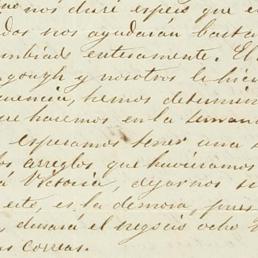 nos dará espera que e
dos nos ayudarán basta
mbiads enteramente. El
gough y nosotros le hici
uencia, hemos determin
que hacemos en la semana
esperamos tener una
os arreglos que hicieramos
á Victoria, dejarnos se
este, es la demora, pues
, durará el negocio ocho
as correas.